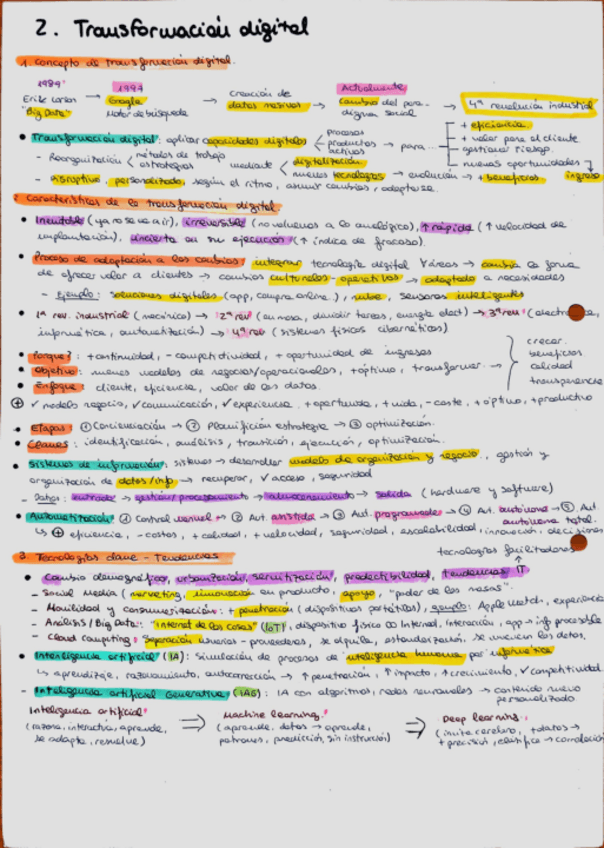 2. Transformación digital
1. Concepto de transformación digital.
1989' 1997 Actualmente
Erik Larson → Google → Creación de → Cambio del para- → 4ª revolución industrial
"Big Data" Motor de búsqueda datos masivos digma social
+ eficiencia
• Transformación digital: aplicar capacidades digitales procesos
productos → para + valor para el cliente
activos gestionar riesgo.
- Reorganización métodos de trabajo mediante digitalización nuevas oportunidades
estrategias nuevas tecnologías → evolución → + beneficios ingreso
- Disruptivo, personalizado, según el ritmo, asumir cambios, adaptarse.
2. Características de la transformación digital
• Inevitable (ya no se va a ir), irreversible (no volvemos a lo analógico), ↑ rápida (↑ velocidad de
implantación), incierta en su ejecución (↑ índice de fracaso).
• Proceso de adaptación a los cambios: integrar tecnología digital áreas → cambia la forma
de ofrecer valor a clientes → cambios culturales-operativos → adaptado a necesidades
- Ejemplo: soluciones digitales (app, compra online..), nube, sensores inteligentes
• 1ª rev. industrial (mecánica) → 2ª rev (en masa, dividir tareas, energía elect) → 3ª rev (electró
informática, automatización) → 4ª rev (sistemas físicos cibernéticos)
• Porque?: + continuidad, - competitividad, + oportunidad de ingresos
• Objetivo: nuevos modelos de negocios/operacionales, + óptimo, transformar →
crecer.
beneficios
calidad
transparencia
• Enfoque: cliente, eficiencia, valor de los datos.
⊕ ✓ modelo negocio, ✓ comunicación, ✓ experiencia, + oportunidad, + vida, - coste, + óptimo, + productivo
• Etapas ① Concienciación → ② Planificación estrategia → ③ optimización.
• Claves: identificación, análisis, transición, ejecución, optimización.
• Sistemas de información: sistemas → desarrollar modelo de organización y negocio, gestión y
organización de datos/info → recuperar, ✓ acceso, seguridad
- Datos: entrada → gestión/procesamiento → almacenamiento → salida (hardware y software)
• Automatización ① Control manual → ② Aut. asistida → ③ Aut. programada → ④ Aut. autónoma → ⑤ Aut.
autónoma total.
↳ ⊕ eficiencia, - costes, + calidad, + velocidad, seguridad, escalabilidad, innovación, decisiones
3. Tecnologías clave - Tendencias
tecnologías facilitadoras
• Cambio demográfico, urbanización, servitización, predictibilidad, tendencias IT
- Social Media (marketing, innovación en producto, apoyo, "poder de las masas".
- Movilidad y consumerización: + penetración (dispositivos portátiles), ejemplo: Apple watch, experiencia
- Análisis/Big Data: "internet de las cosas" (IoT), dispositivo físico ∞ Internet, interacción, app → info procesable
- Cloud computing: Separación usuarios - proveedores, se alquila, estandarización, se vinculan los datos.
• Inteligencia artificial (IA): simulación de procesos de inteligencia humana por informática
↳ aprendizaje, razonamiento, autocorrección → ↑ penetración, ↑ impacto, ↑ crecimiento, ✓ competitividad
- Inteligencia artificial Generativa (IAG): IA con algoritmos, redes neuronales → contenido nuevo
personalizado
Inteligencia artificial: ⇒ Machine learning: ⇒ Deep learning:
(razona, interactúa, aprende, (aprende, datos → aprende, (imita cerebro, + datos →
se adapta, resuelve) patrones, predicción, sin instrucción) + precisión, clasifica → correlación